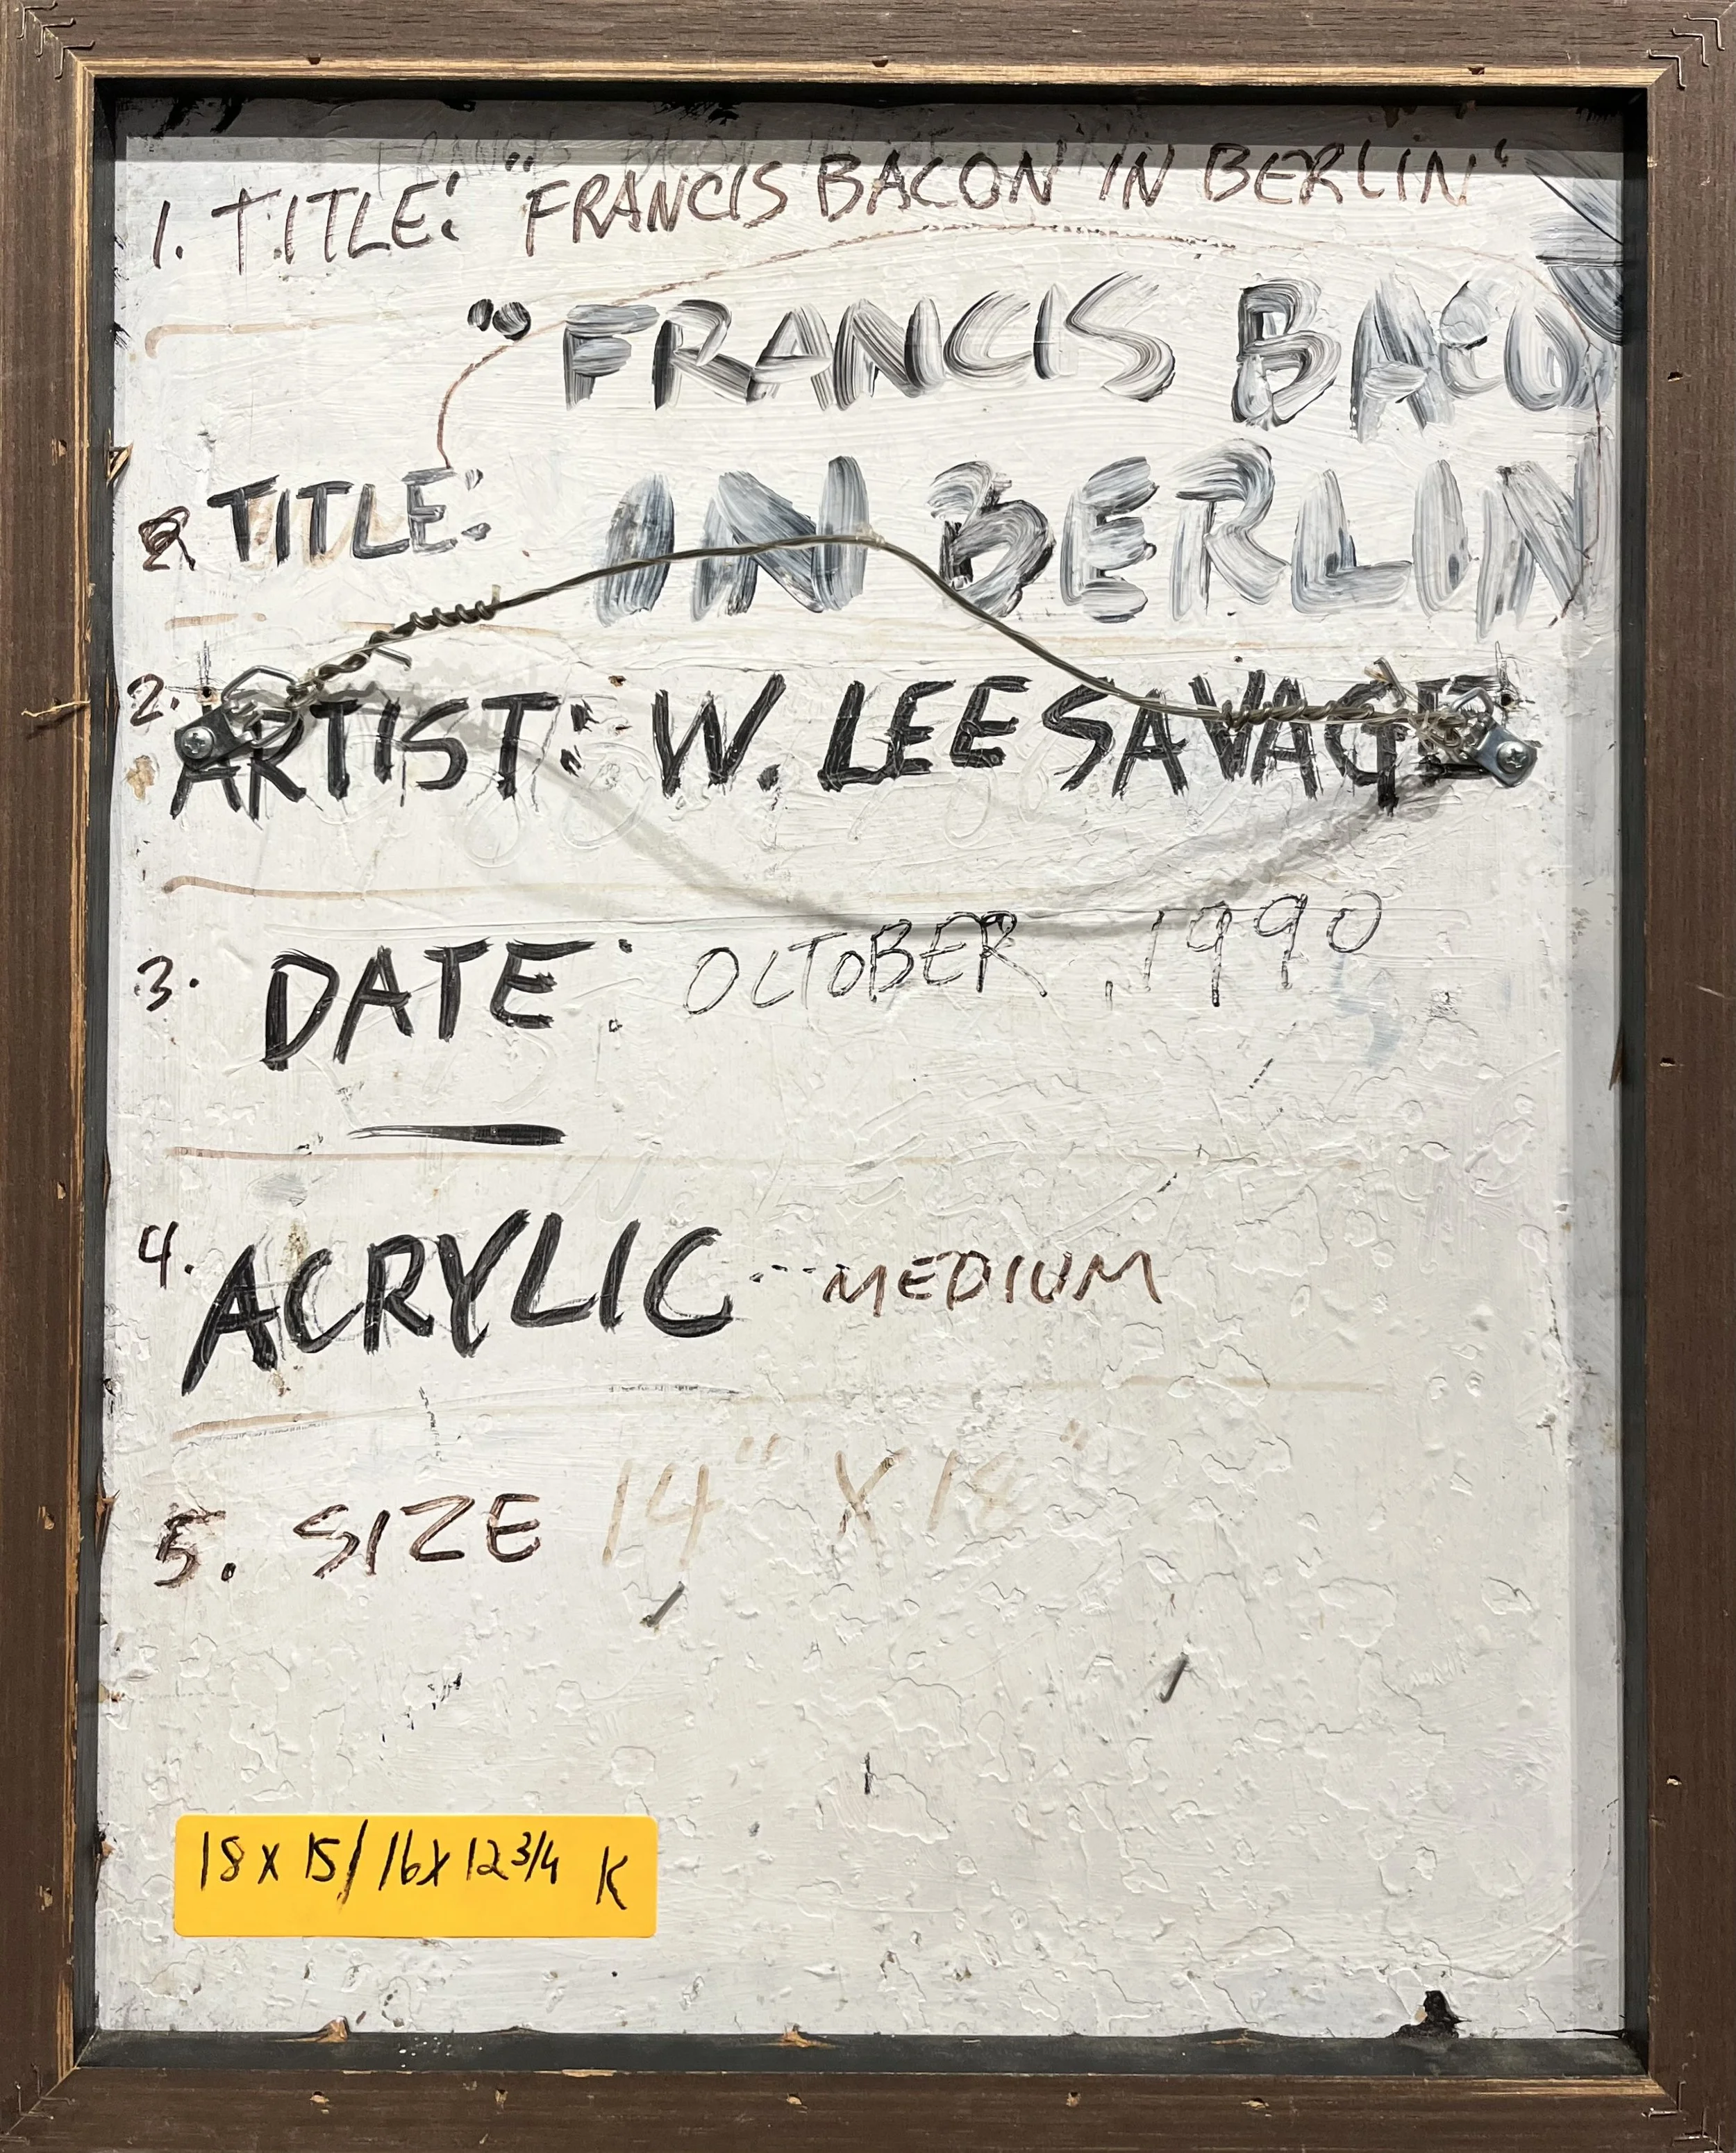 FRANCIS BACON IN
1. TITLE: "FRANCIS BACON IN BERLIN"
"FRANCIS BACO
TITLE: IN BERLIN
2. ARTIST: W. LEE SAVAGE
3. DATE: OCTOBER, 1990
4. ACRYLIC --- MEDIUM
5. SIZE 14" X 18"
18 x 15/16x12 3/4 K